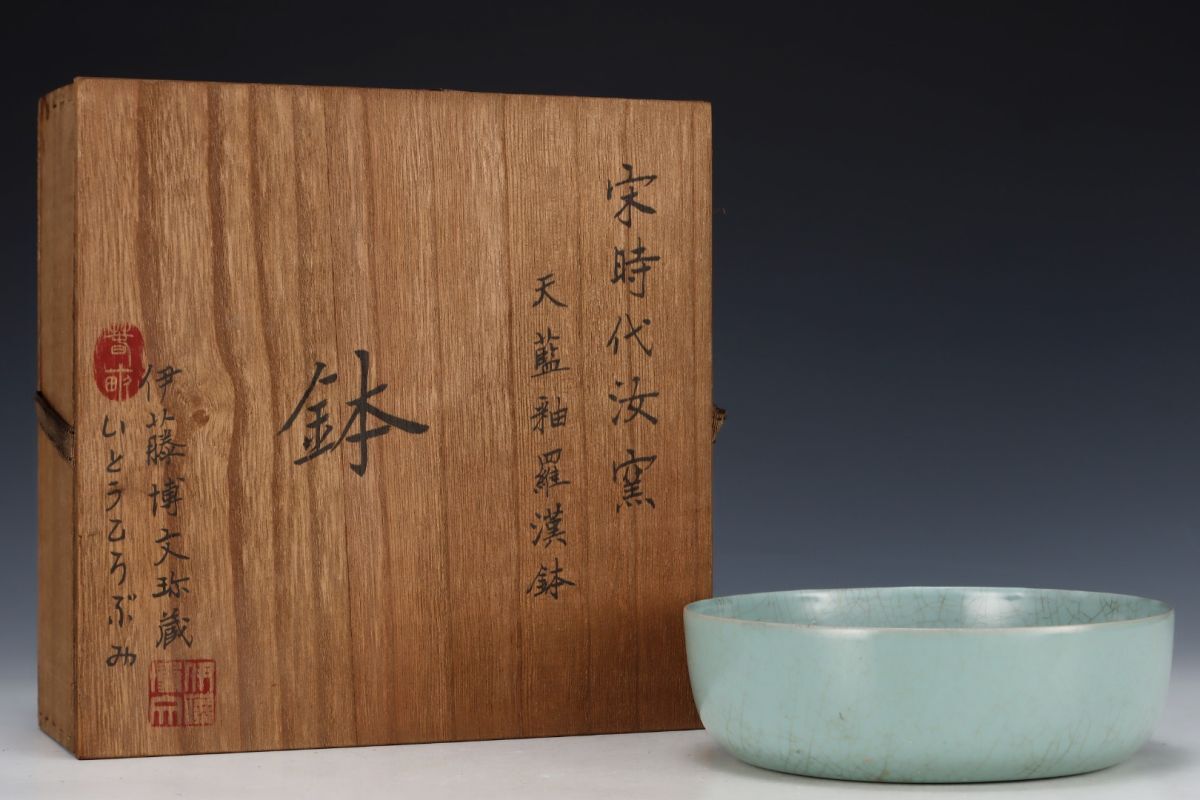 宋時代汝窯
天藍釉羅漢鉢
鉢
伊藤博文珍藏
いとうひろぶみ
春畝